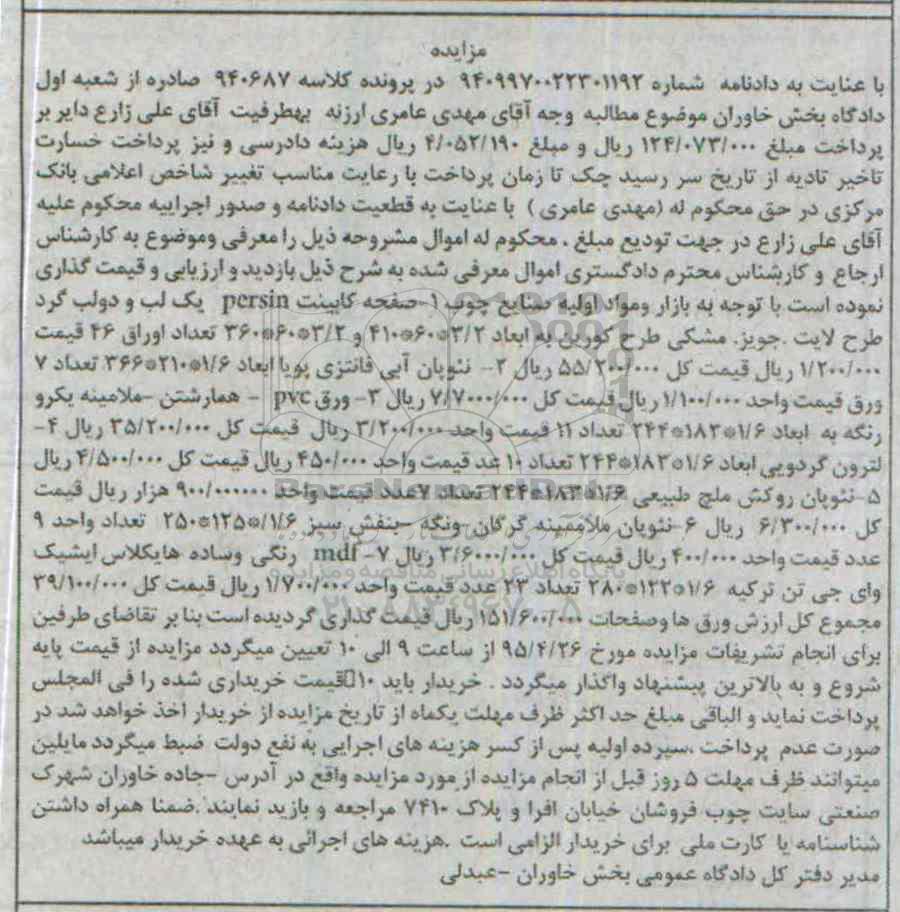 مزایده
با عنایت به دادنامه شماره ۹۴۰۹۹۷۰۰۲۲۳۰۱۱۹۲ در پرونده کلاسه ۹۴۰۶۸۷ صادره از شعبه اول
دادگاه بخش خاوران موضوع مطالبه وجه آقای مهدی عامری ارزنه بهطرفیت آقای علی زارع دایر بر
پرداخت مبلغ ۱۲۴/۰۷۳/۰۰۰ ریال و مبلغ ۴/۰۵۲/۱۹۰ ریال هزینه دادرسی و نیز پرداخت خسارت
تاخیر تادیه از تاریخ سر رسید چک تا زمان پرداخت با رعایت مناسب تغییر شاخص اعلامی بانک
مرکزی در حق محکوم له (مهدی عامری ) با عنایت به قطعیت دادنامه و صدور اجراییه محکوم علیه
آقای علی زارع در جهت تودیع مبلغ . محکوم له اموال مشروحه ذیل را معرفی وموضوع به کارشناس
ارجاع و کارشناس محترم دادگستری اموال معرفی شده به شرح ذیل بازدید و ارزیابی و قیمت گذاری
نموده است با توجه به بازار ومواد اولیه صنایع چوب ۱-صفحه کابینت persin یک لب و دولب گرد
طرح لایت .جویز. مشکی طرح کورین به ابعاد ۳/۲*۶۰*۴۱۰ و ۳/۲*۶۰*۳۶۰ تعداد اوراق ۴۶ قیمت
۱/۲۰۰/۰۰۰ ریال قیمت کل ۵۵/۲۰۰/۰۰۰ ریال ۲- نئوپان آبی فانتزی پویا ابعاد ۱/۶*۲۱۰*۳۶۶ تعداد ۷
ورق قیمت واحد ۱/۱۰۰/۰۰۰ ریال قیمت کل ۷/۷۰۰۰/۰۰۰ ریال ۳- ورق pvc - همارشتن -ملامینه یکرو
رنگه به ابعاد ۱/۶*۱۸۳*۲۴۴ تعداد ۱۱ قیمت واحد ۳/۲۰۰/۰۰۰ ریال قیمت کل ۳۵/۲۰۰/۰۰۰ ریال ۴-
لترون گردویی ابعاد ۱/۶*۱۸۳*۲۴۴ تعداد ۱۰ عد قیمت واحد ۴۵۰/۰۰۰ ریال قیمت کل ۴/۵۰۰/۰۰۰ ریال
۵-نئوپان روکش ملچ طبیعی ۱/۶*۱۸۳*۲۴۴ تعداد ۷عدد قیمت واحد ۹۰۰/۰۰۰۰۰۰ هزار ریال قیمت
کل ۶/۳۰۰/۰۰۰ ریال ۶-نئوپان ملامینه گرگان -ونگه -بنفش سبز ۱/۶/*۱۲۵*۲۵۰ تعداد واحد ۹
عدد قیمت واحد ۴۰۰/۰۰۰ ریال قیمت کل ۳/۶۰۰۰/۰۰۰ ریال ۷- mdf رنگی وساده هایکلاس ایشیک
وای جی تن ترکیه ۱/۶*۱۲۲*۲۸۰ تعداد ۲۳ عدد قیمت واحد ۱/۷۰۰/۰۰۰ ریال قیمت کل ۳۹/۱۰۰/۰۰۰
مجموع کل ارزش ورق ها وصفحات ۱۵۱/۶۰۰/۰۰۰ ریال قیمت گذاری گردیده است بنا بر تقاضای طرفین
برای انجام تشریفات مزایده مورخ ۹۵/۴/۲۶ از ساعت ۹ الی ۱۰ تعیین میگردد مزایده از قیمت پایه
شروع و به بالاترین پیشنهاد واگذار میگردد . خریدار باید ۱۰ قیمت خریداری شده را فی المجلس
پرداخت نماید و الباقی مبلغ حد اکثر ظرف مهلت یکماه از تاریخ مزایده از خریدار اخذ خواهد شد در
صورت عدم پرداخت ،سپرده اولیه پس از کسر هزینه های اجرایی به نفع دولت ضبط میگردد مایلین
میتوانند ظرف مهلت ۵ روز قبل از انجام مزایده از مورد مزایده واقع در آدرس -جاده خاوران شهرک
صنعتی سایت چوب فروشان خیابان افرا و پلاک ۷۴۱۰ مراجعه و بازید نمایند .ضمنا همراه داشتن
شناسنامه یا کارت ملی برای خریدار الزامی است .هزینه های اجرائی به عهده خریدار میباشد
مدیر دفتر کل دادگاه عمومی بخش خاوران -عبدلی